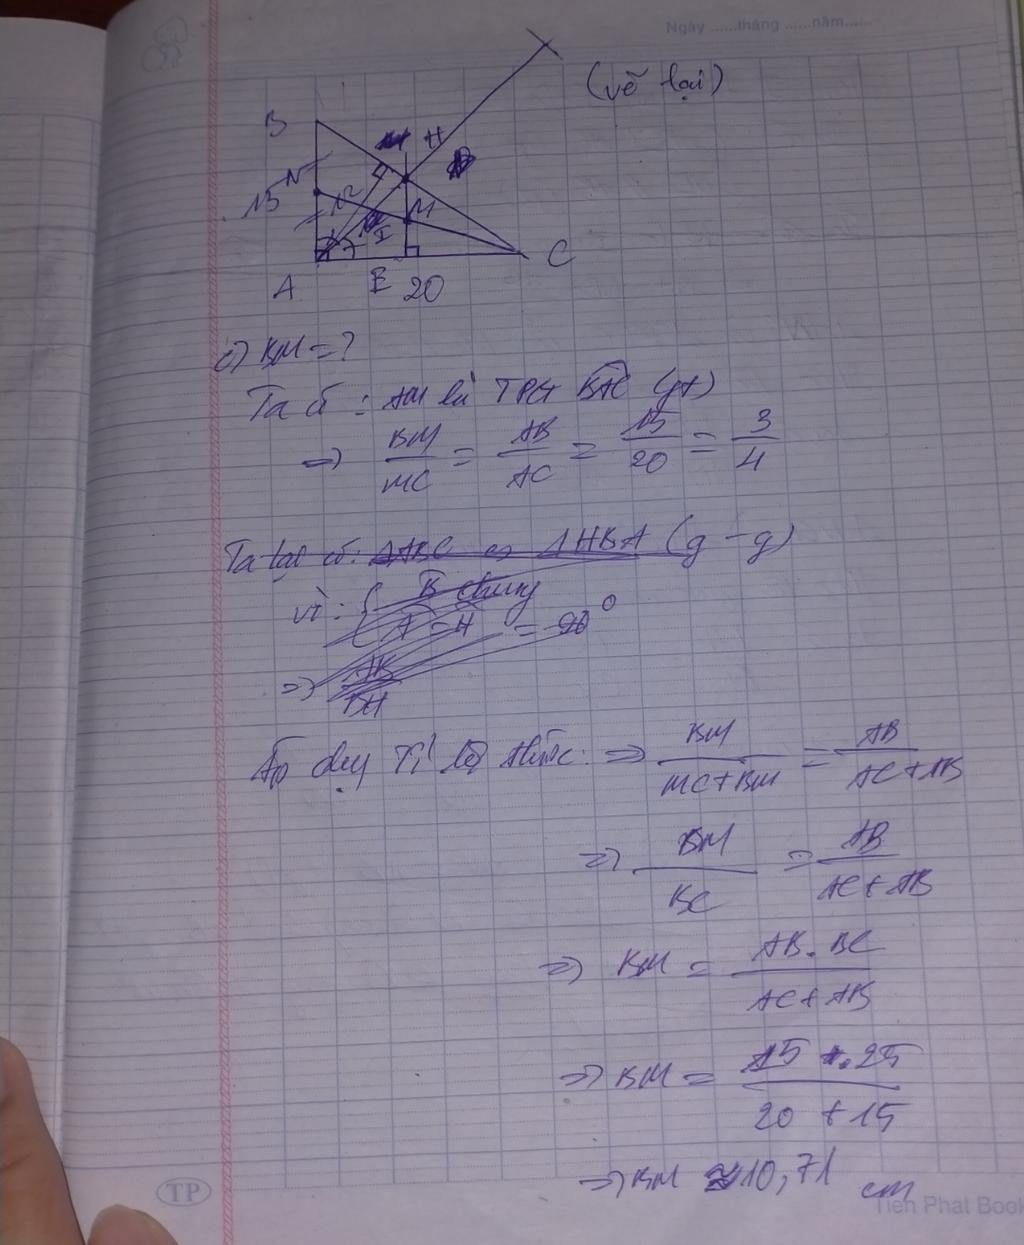 Ngày ......tháng ......năm......
(vẽ lại)
B
H
N
15
M
I
A
E
20
C
c) BM = ?
Ta có : AM là TPG BAC (gt)
=> BM/MC = AB/AC = 15/20 = 3/4
Ta lại có: ΔABC ∽ ΔHBA (g-g)
vì: { B chung
A = H = 90°
=> AB/BH
Áp dụng Tỉ lệ thức: => BM/MC+BM = AB/AC+AB
=> BM/BC = AB/AC+AB
=> BM = AB.BC/AC+AB
=> BM = 15.25/20+15
=> BM ≈ 10,71 cm
TP
Tien Phat Book